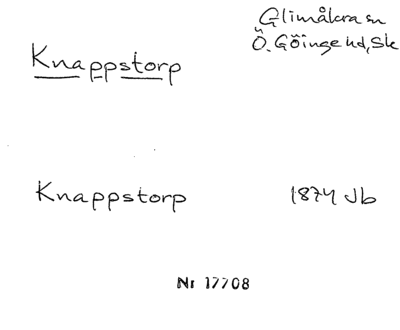 Glimåkra sn
Ö. Göinge hd, Sk
Knappstorp
Knappstorp 1874 Jb
Nr 17708